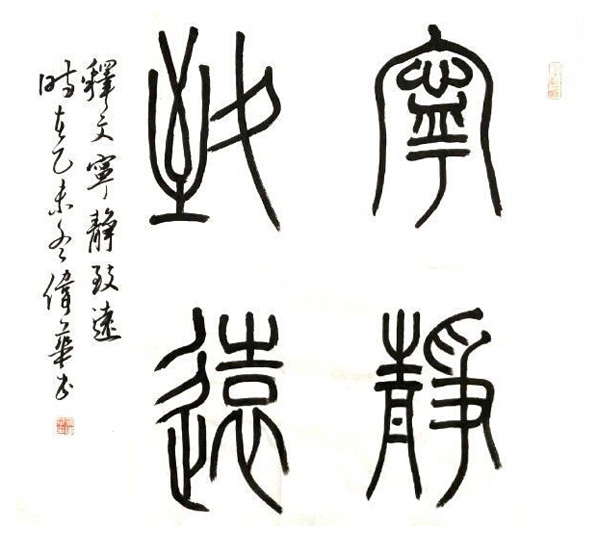 寧靜
致遠
釋文寧靜致遠
時在乙未冬偉華書